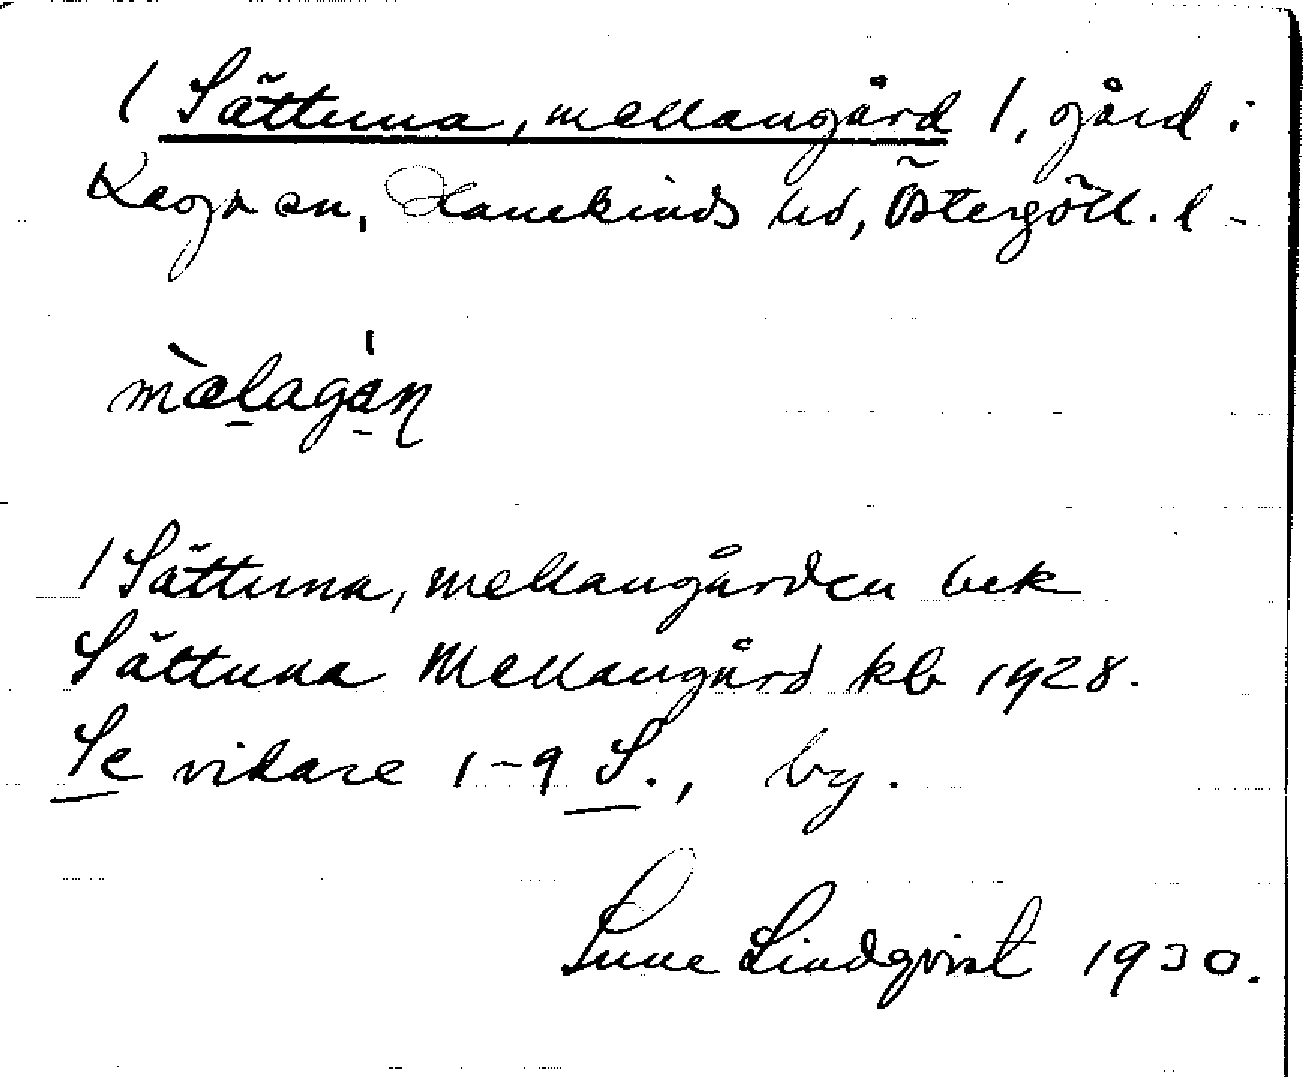 1 Sättuna, mellangård 1, gård i
Kaga sn, Hanekinds hd, Östergötl. l -
mælagán
1 Sättuna, mellangården bek
Sättuna Mellangård kb 1928.
Se vidare 1-9 S., by.
Sune Lindqvist 1930.